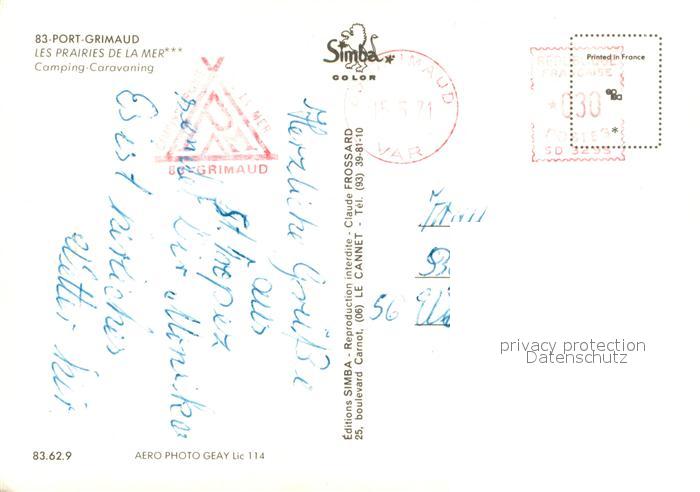 83-PORT-GRIMAUD
LES PRAIRIES DE LA MER***
Camping-Caravaning
Simba
COLOR
Printed in France
GRIMAUD
VAR
REPUBLIQUE
FRANCAISE
030
POSTES
LA MER
83-GRIMAUD
Herzliche Grüße
aus
St. Tropez
sendet Dir Monika
Es ist
Wetter hier
Éditions SIMBA - Reproduction interdite - Claude FROSSARD
25, boulevard Carnot, (06) LE CANNET - Tél. (93) 39-81-10
56
privacy protection
Datenschutz
83.62.9
AERO PHOTO GEAY Lic 114